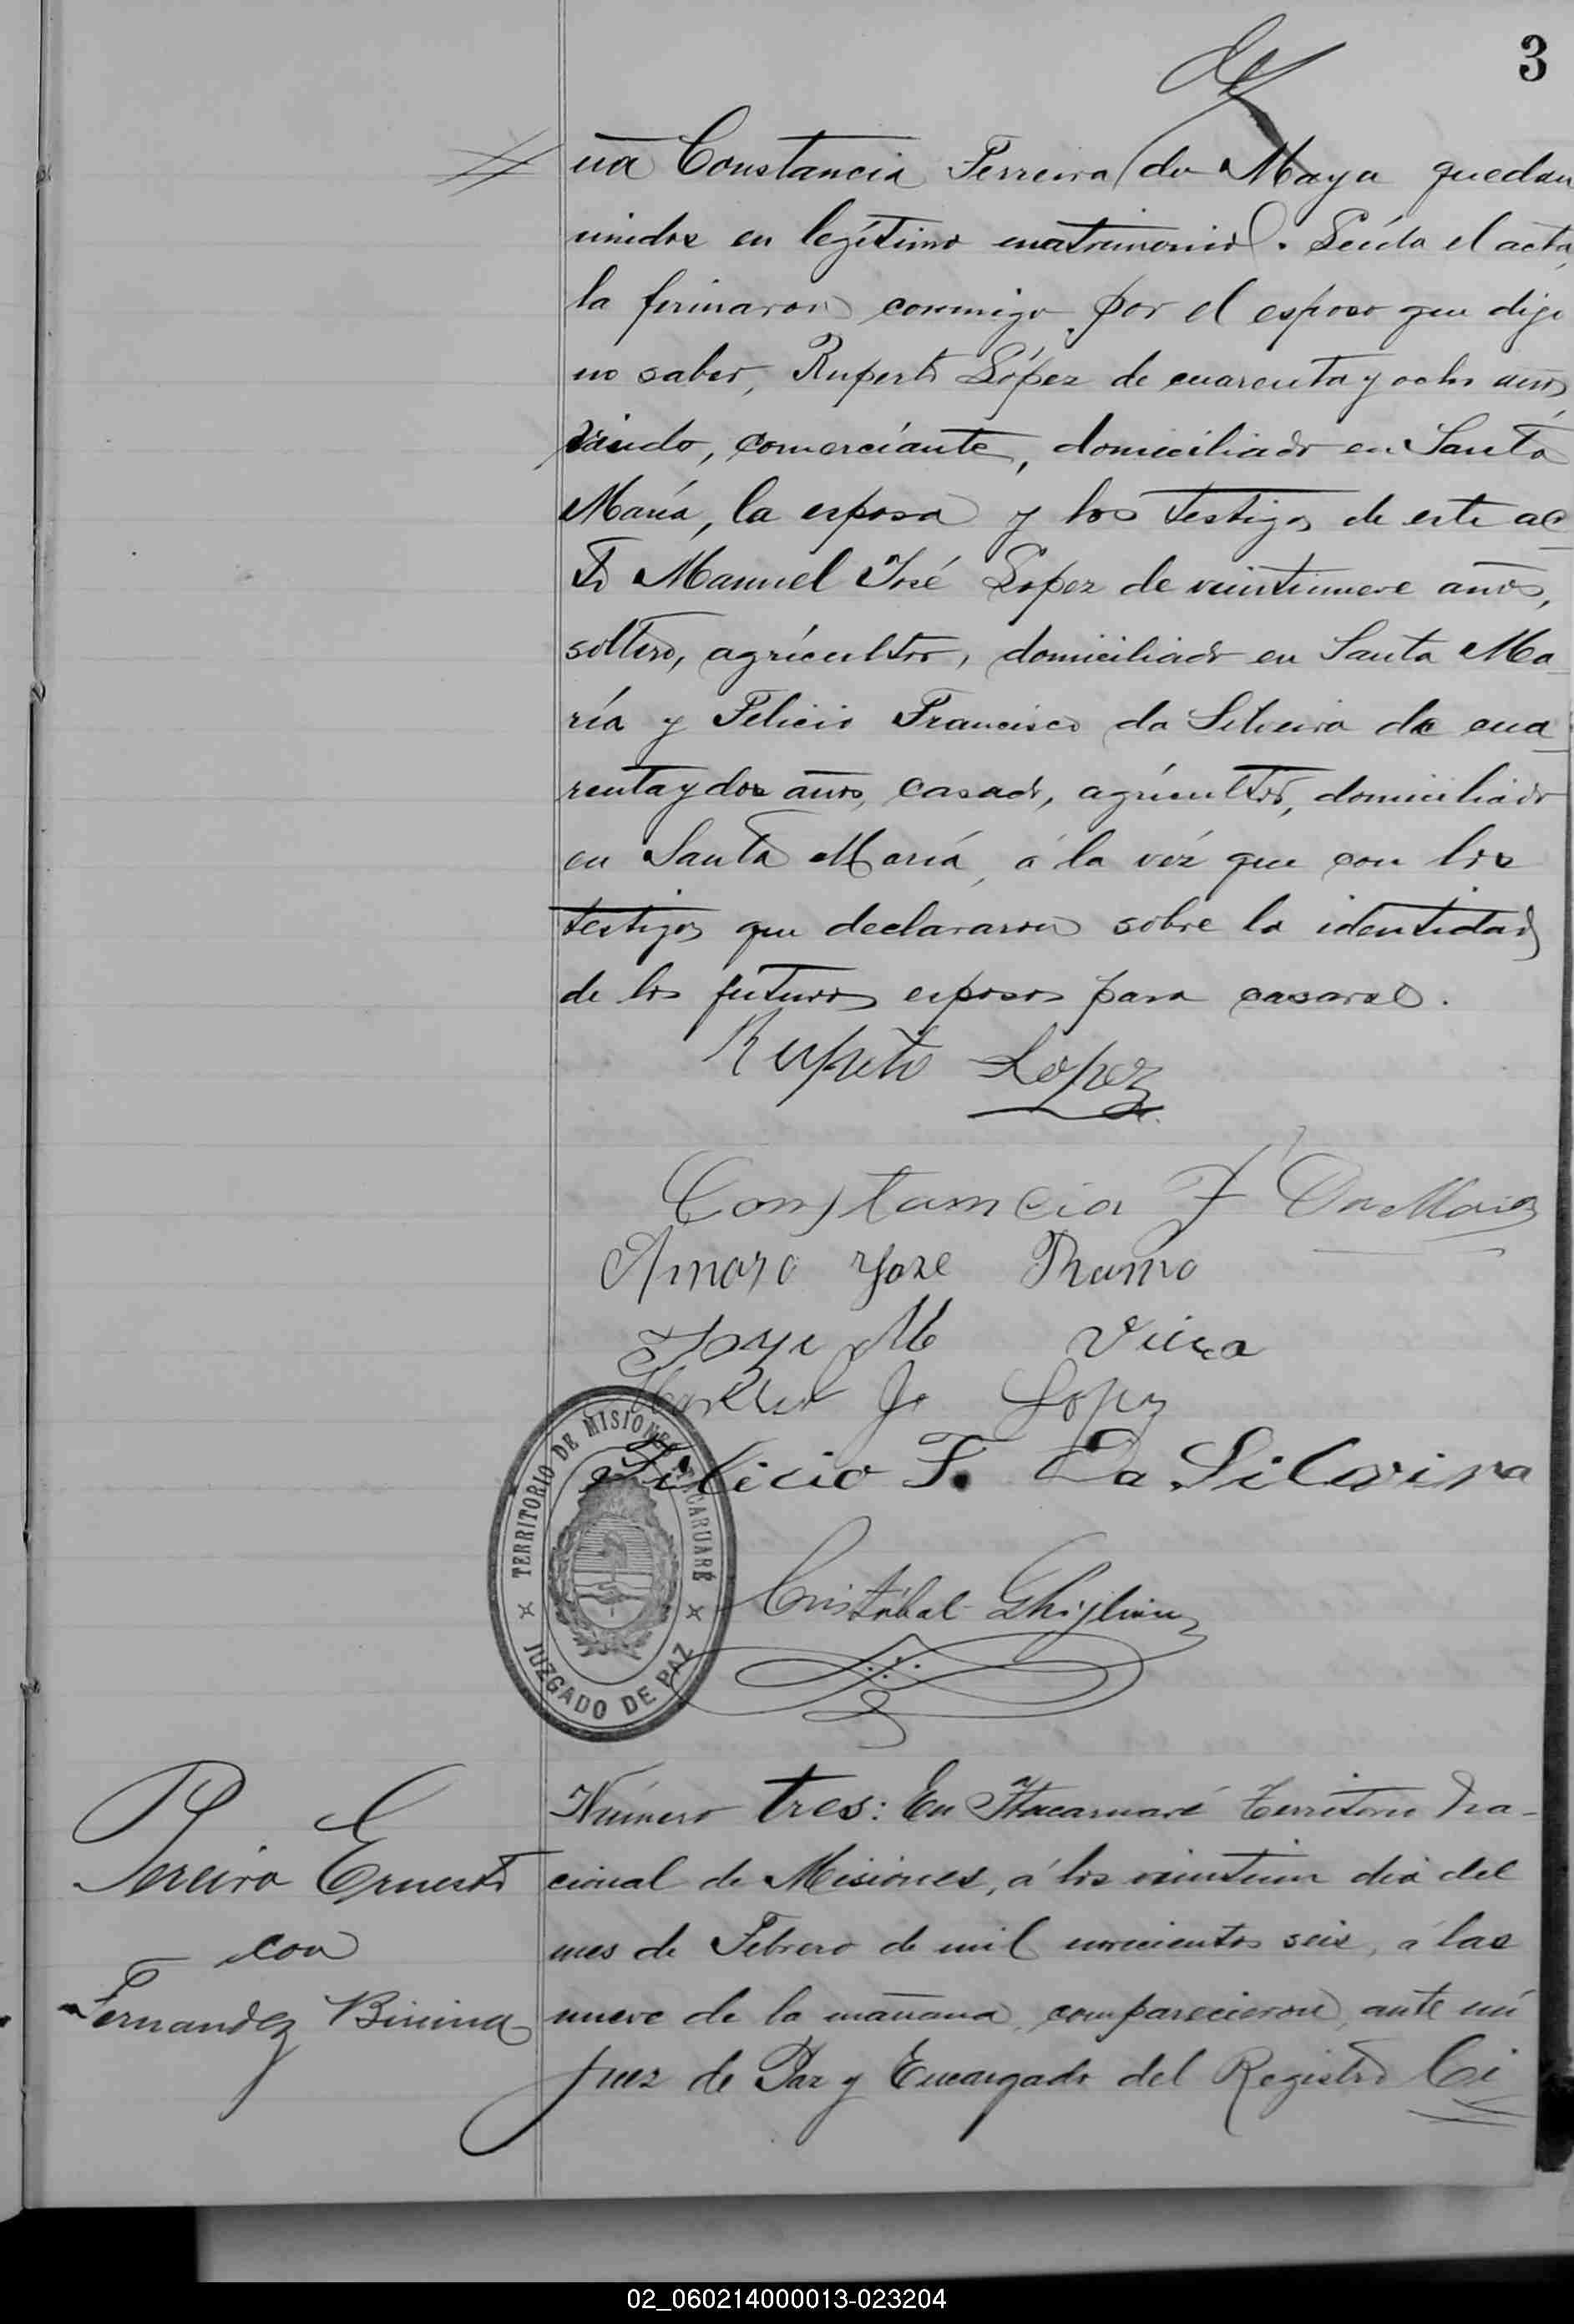 3
ña Constancia Ferreira da Maya quedan
unidos en legítimo matrimonio. Leída el acta,
la firmaron conmigo por el esposo que dijo
no saber, Ruperto López de cuarenta y ocho años,
viudo, comerciante, domiciliado en Santa
María, la esposa y los testigos de este ac
to Manuel José Lopez de veintinueve años,
soltero, agricultor, domiciliado en Santa Ma-
ría y Felicio Francisco da Silveira de cua
renta y dos años, casado, agricultor, domiciliado
en Santa María, á la vez que con los
testigos que declararon sobre la identidad
de los futuros esposos para casarse.
Ruperto Lopez
Constancia F Da Maia
Amaro Jose Ramo
Jorge M Viera
Manuel Jo Lopez
Felicio F. Da Silveira
TERRITORIO DE MISIONES ITACARUARÉ
JUZGADO DE PAZ
Cristóbal Ghiglione
Pereira Ernesto
con
Fernandez Binina
Número tres: En Itacaruaré Territorio Na-
cional de Misiones, á los veintiun dia del
mes de Febrero de mil novecientos seis, á las
nueve de la mañana, comparecieron, ante mí
Juez de Paz y Encargado del Registro Ci
02_060214000013-023204